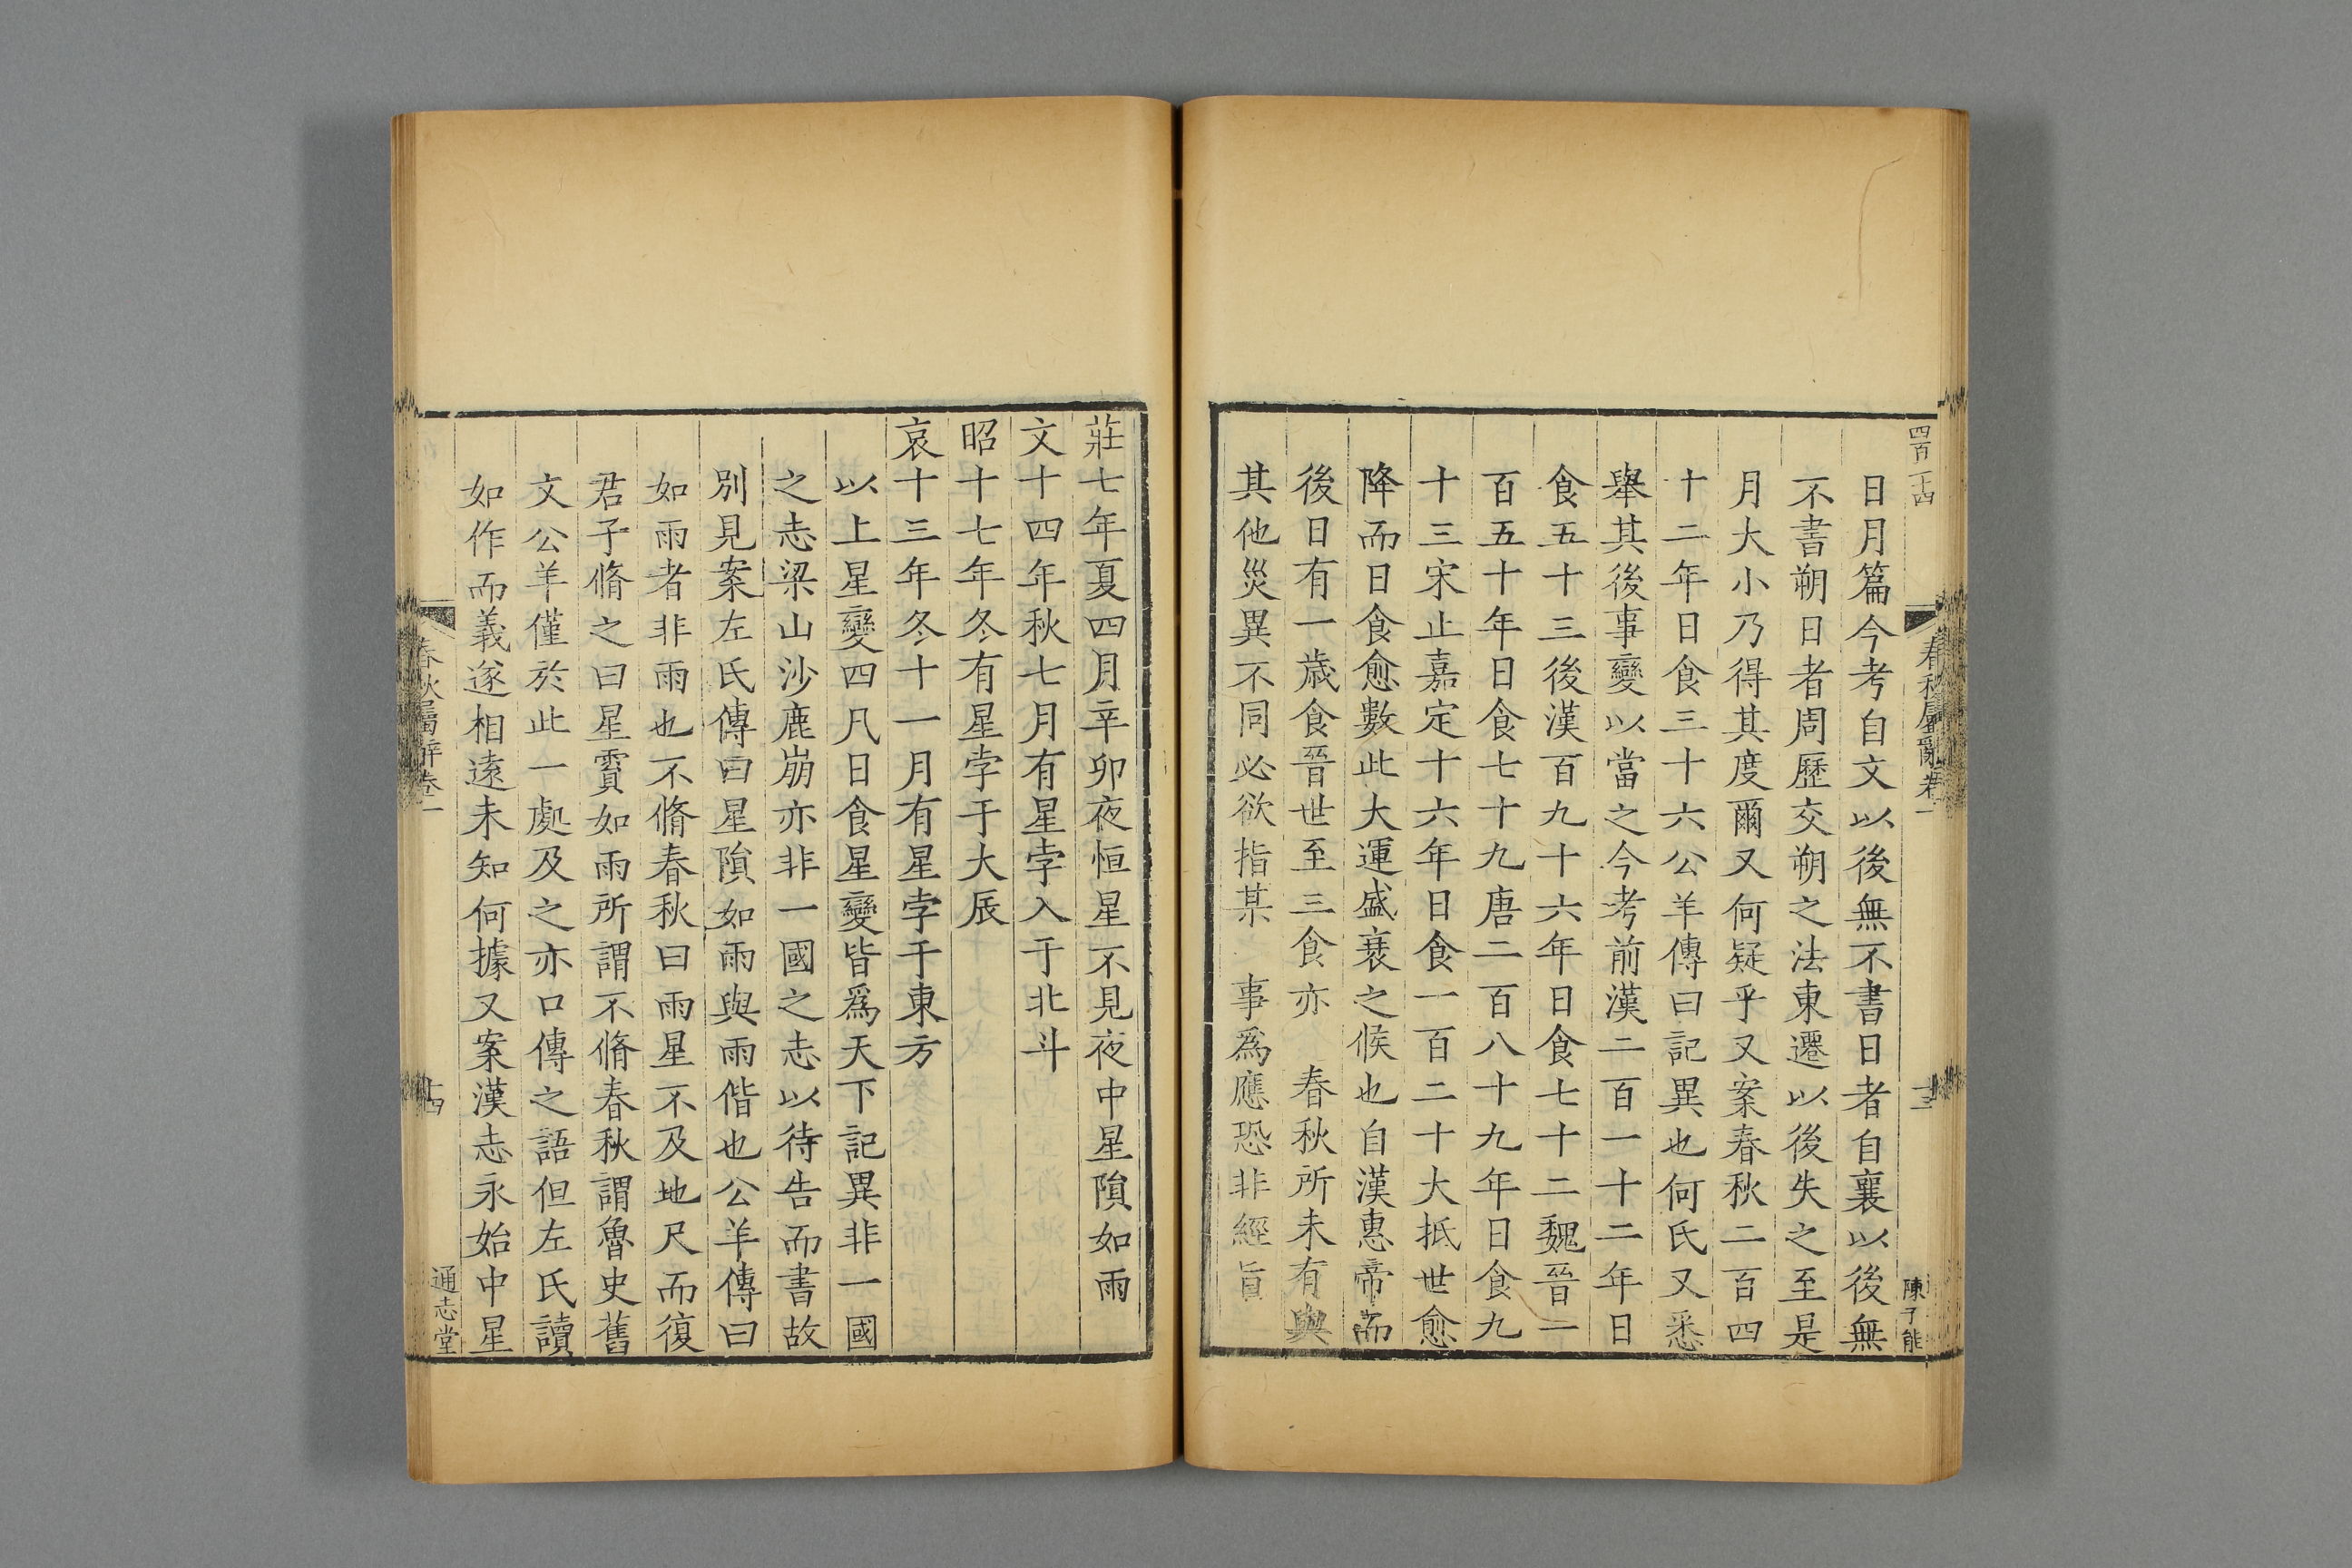 四百一十四
春秋屬辭卷一
十三
陳子能
日月篇今考自文以後無不書日者自襄以後無
不書朔日者周歷交朔之法東遷以後失之至是
月大小乃得其度爾又何疑乎又案春秋二百四
十二年日食三十六公羊傳曰記異也何氏又悉
舉其後事變以當之今考前漢二百一十二年日
食五十三後漢百九十六年日食七十二魏晉一
百五十年日食七十九唐二百八十九年日食九
十三宋止嘉定十六年日食一百二十大抵世愈
降而日食愈數此大運盛衰之候也自漢惠帝而
後日有一歲食晉世至三食亦 春秋所未有與
其他災異不同必欲指某 事為應恐非經旨
莊七年夏四月辛卯夜恒星不見夜中星隕如雨
文十四年秋七月有星孛入于北斗
昭十七年冬有星孛于大辰
哀十三年冬十一月有星孛于東方
以上星變四凡日食星變皆為天下記異非一國
之志梁山沙鹿崩亦非一國之志以待告而書故
別見案左氏傳曰星隕如雨與雨偕也公羊傳曰
如雨者非雨也不脩春秋曰雨星不及地尺而復
君子脩之曰星霣如雨所謂不脩春秋謂魯史舊
文公羊僅於此一處及之亦口傳之語但左氏讀
如作而義遂相遠未知何據又案漢志永始中星
春秋屬辭卷一
十四
通志堂